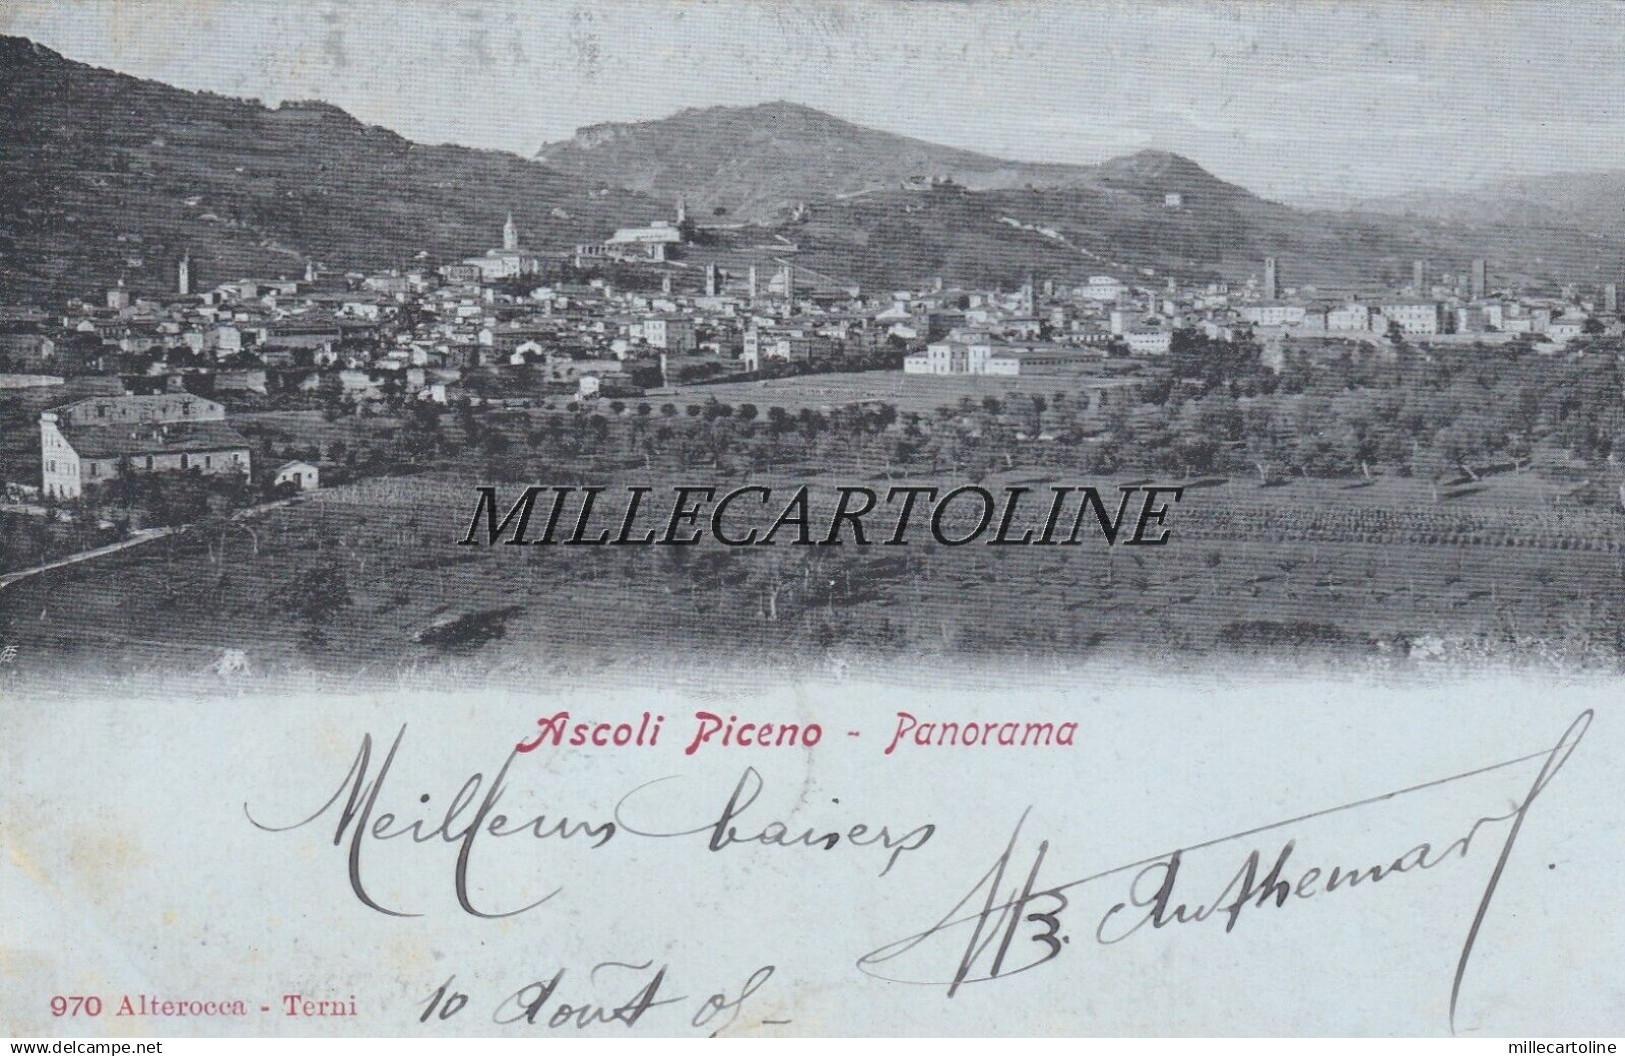 MILLECARTOLINE
Ascoli Piceno - Panorama
Meilleurs baisers
B. Anthemard.
970 Alterocca - Terni
10 Août 05
delcampe.net
millecartoline